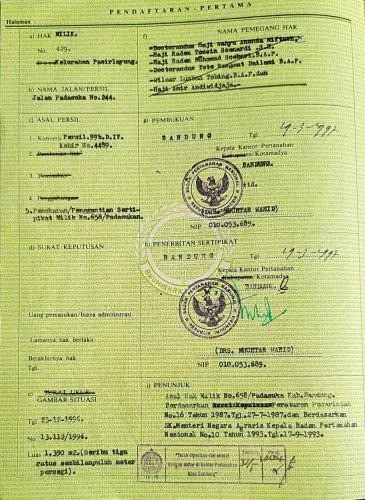 PENDAFTARAN - PERTAMA
Halaman
a) HAK MILIK.
No. 429.
Kelurahan Pasirlayung.
b) NAMA JALAN/PERSIL
Jalan Padasuka No.244.
f) NAMA PEMEGANG HAK
-Doctorandus Haji Wahyu Ananda
-Haji Raden
-Haji Raden Muhamad Soenari.B.A.P.
-Doctorandus Toto Rachmat Dailami B.A.P.
-Wilmar Lumban Tobing.B.A.P.dan
-Haji Amir Andiwidjaja.-
c) ASAL PERSIL
1. Konversi Persil.99b.D.IV.
Kohir No.4489.
2. Pemberian hak
3. Pemisahan
4. Penggabungan
5. Penukaran/Penggantian Serti-
pikat Milik No.658/Padasukan.
g) PEMBUKUAN
BANDUNG Tgl
Kepala Kantor Pertanahan
Kabupaten/Kotamadya
BANDUNG.
ttd.
(DRS. MUCHTAR WAHID)
NIP 010.053.689.
d) SURAT KEPUTUSAN
Uang pemasukan/biaya administrasi
Lamanya hak berlaku
Berakhirnya hak
Tgl.
h) PENERBITAN SERTIPIKAT
BANDUNG Tgl
Kepala Kantor Pertanahan
Kabupaten/Kotamadya
BANDUNG
BADAN PERTANAHAN NASIONAL
REPUBLIK INDONESIA
(DRS. MUCHTAR WAHID)
NIP 010.053.689.
e) SURAT UKUR
GAMBAR SITUASI
Tgl 23-12-1996.
No 13.112/1996.
Luas 1.390 m2.(Seribu tiga
ratus sembilanpuluh meter
persegi).
i) PENUNJUK
Asal Hak Milik No.658/Padasuka Kab.Bandung.
Berdasarkan Peraturan Pemerintah
No.16 Tahun 1987.Tgl.27-7-1987.dan Berdasarkan
SK.Menteri Negara Agraria Kepala Badan Pertanahan
Nasional No.10 Tahun 1993.Tgl.17-9-1993.